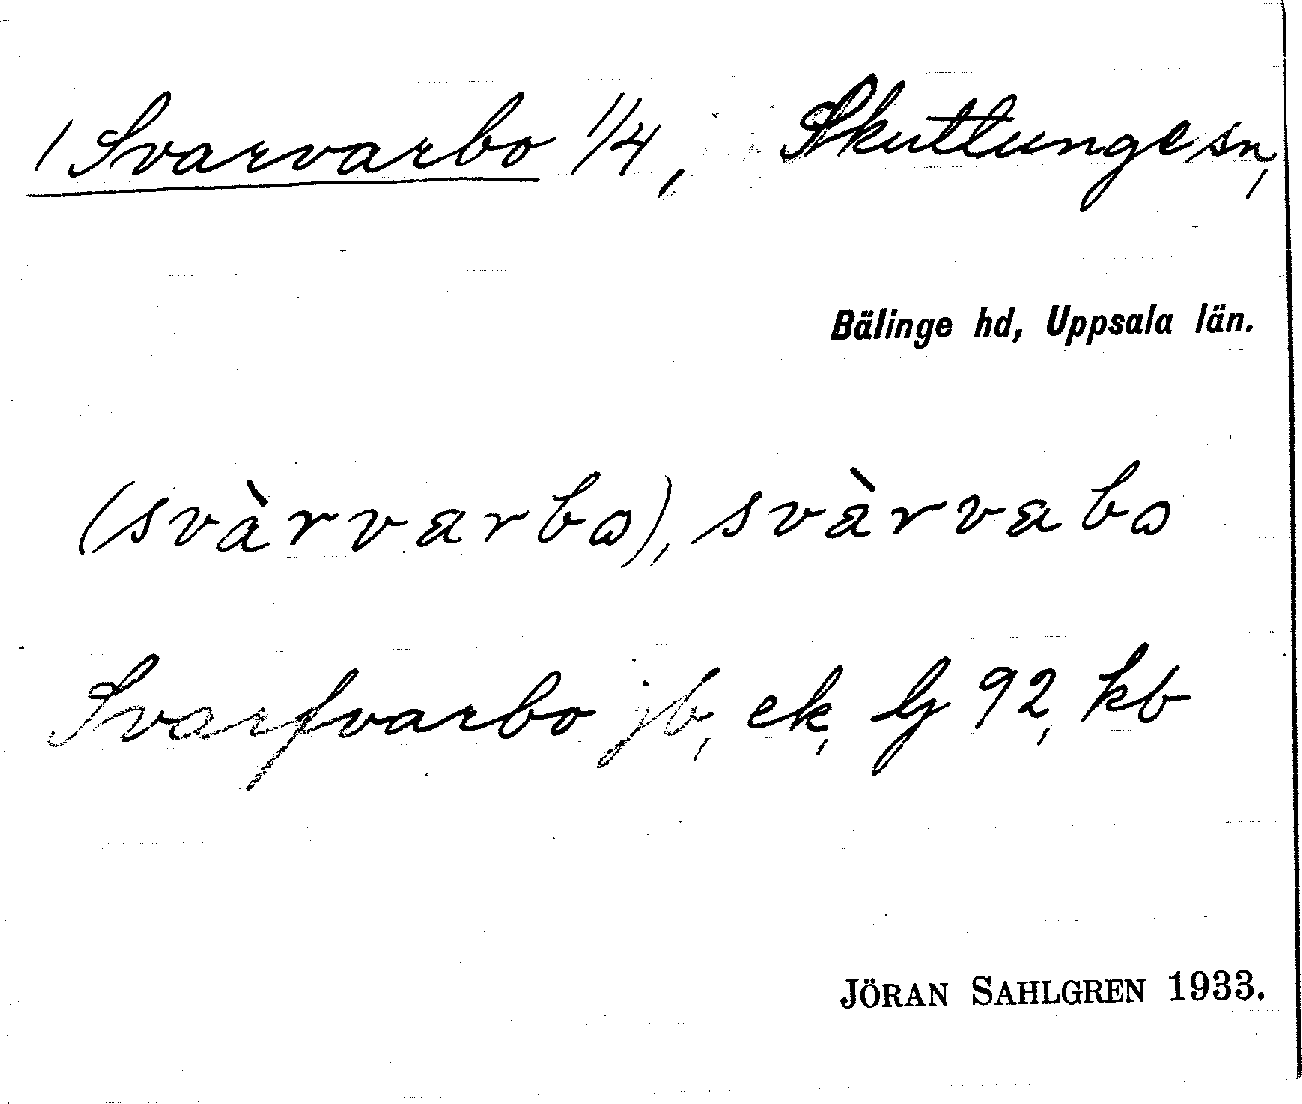 1 Svarvarbo 1/4, Skuttunge sn,
Bälinge hd, Uppsala län.
(svàrvarbo), svàrvabo
Svarfvarbo jb, ek, G 92, kb
JÖRAN SAHLGREN 1933.